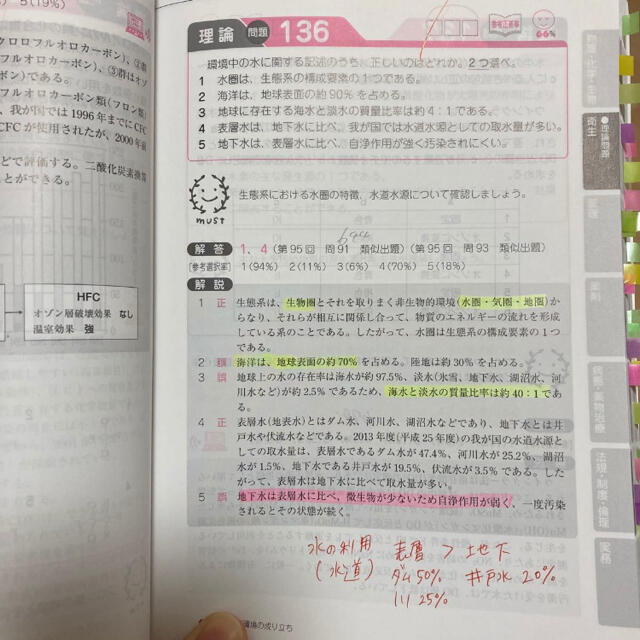 5(19%)
クロロフルオロカーボン)、③群
フルオロカーボン)、③群はオゾ
ン)である。
フルオロカーボン類(フロン類)
我が国では1996年までにCFC
CFCが使用されたが、2000年前
どで評価する。二酸化炭素換算
ことができる。
HFC
オゾン層破壊効果 なし
温室効果 強
理論 問題 136
参考正答率
66%
環境中の水に関する記述のうち、正しいのはどれか。2つ選べ。
1 水圏は、生態系の構成要素の1つである。
2 海洋は、地球表面の約90%を占める。
3 地球に存在する海水と淡水の質量比率は約4:1である。
4 表層水は、地下水に比べ、我が国では水道水源としての取水量が多い。
5 地下水は、表層水に比べ、自浄作用が強く汚染されにくい。
must
生態系における水圏の特徴、水道水源について確認しましょう。
解答 1、4(第95回 問91 類似出題)(第95回 問93 類似出題)
[参考選択率] 1(94%) 2(11%) 3(6%) 4(70%) 5(18%)
解説
1 正 生態系は、生物圏とそれを取りまく非生物的環境(水圏・気圏・地圏)か
らなり、それらが相互に関係し合って、物質のエネルギーの流れを形成
している系のことである。したがって、水圏は生態系の構成要素の1つ
である。
2 誤 海洋は、地球表面の約70%を占める。陸地は約30%を占める。
3 誤 地球上の水の存在率は海水が約97.5%、淡水(氷雪、地下水、湖沼水、河
川水など)が約2.5%であるため、海水と淡水の質量比率は約40:1であ
る。
4 正 表層水(地表水)とはダム水、河川水、湖沼水などであり、地下水とは井
戸水や伏流水などである。2013年度(平成25年度)の我が国の水道水源
としての取水量は、表層水であるダム水が47.4%、河川水が25.2%、湖沼
水が1.5%、地下水である井戸水が19.5%、伏流水が3.5%である。した
がって、表層水は地下水に比べて取水量が多い。
5 誤 地下水は表層水に比べ、微生物が少ないため自浄作用が弱く、一度汚染
されるとその状態が続く。
水の利用 表層 > 地下
(水道) ダム50% 井戸水20%
川25%
環境の成り立ち
物理・化学・生物
衛生
●理論問題
薬理
薬剤
病態・薬物治療
法規・制度・倫理
実務